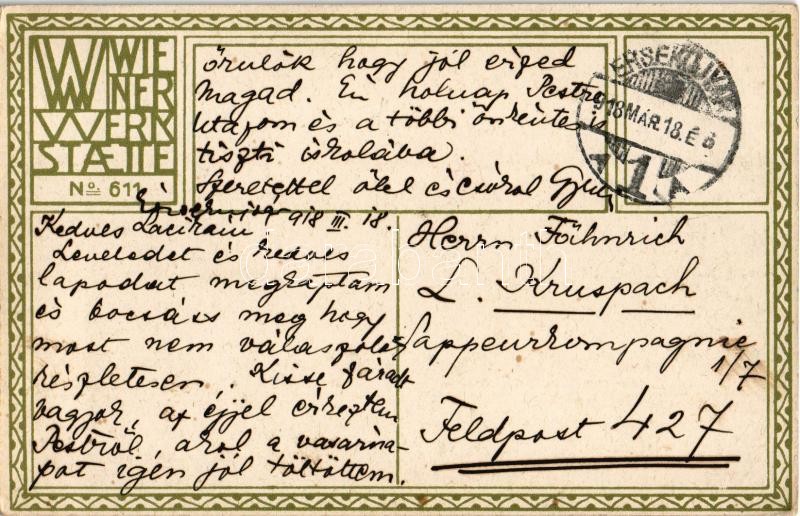 WIENER WERKSTÆTTE
No. 611
ÉRSEKUJVÁR
918 MÁR. 18. É 8
1
Érsekujvár 918 III. 18.
Kedves Lacikám!
Leveledet és kedves
lapodat megkaptam
és bocsáss meg hogy
most nem válaszolok
részletesen. Kisse fáradt
vagyok, az éjjel érkeztem
Pestről, ahol a vasárna-
pot igen jól töltöttem.
örülök hogy jól érzed
magad. Én holnap Pestre
utazom és a többi önkéntes is
tiszti iskolába.
Szeretettel ölel és csókol Gyuri
Herrn Fähnrich
L. Kruspach
Sappeurkompagnie
1/7
Feldpost 427
darabanth